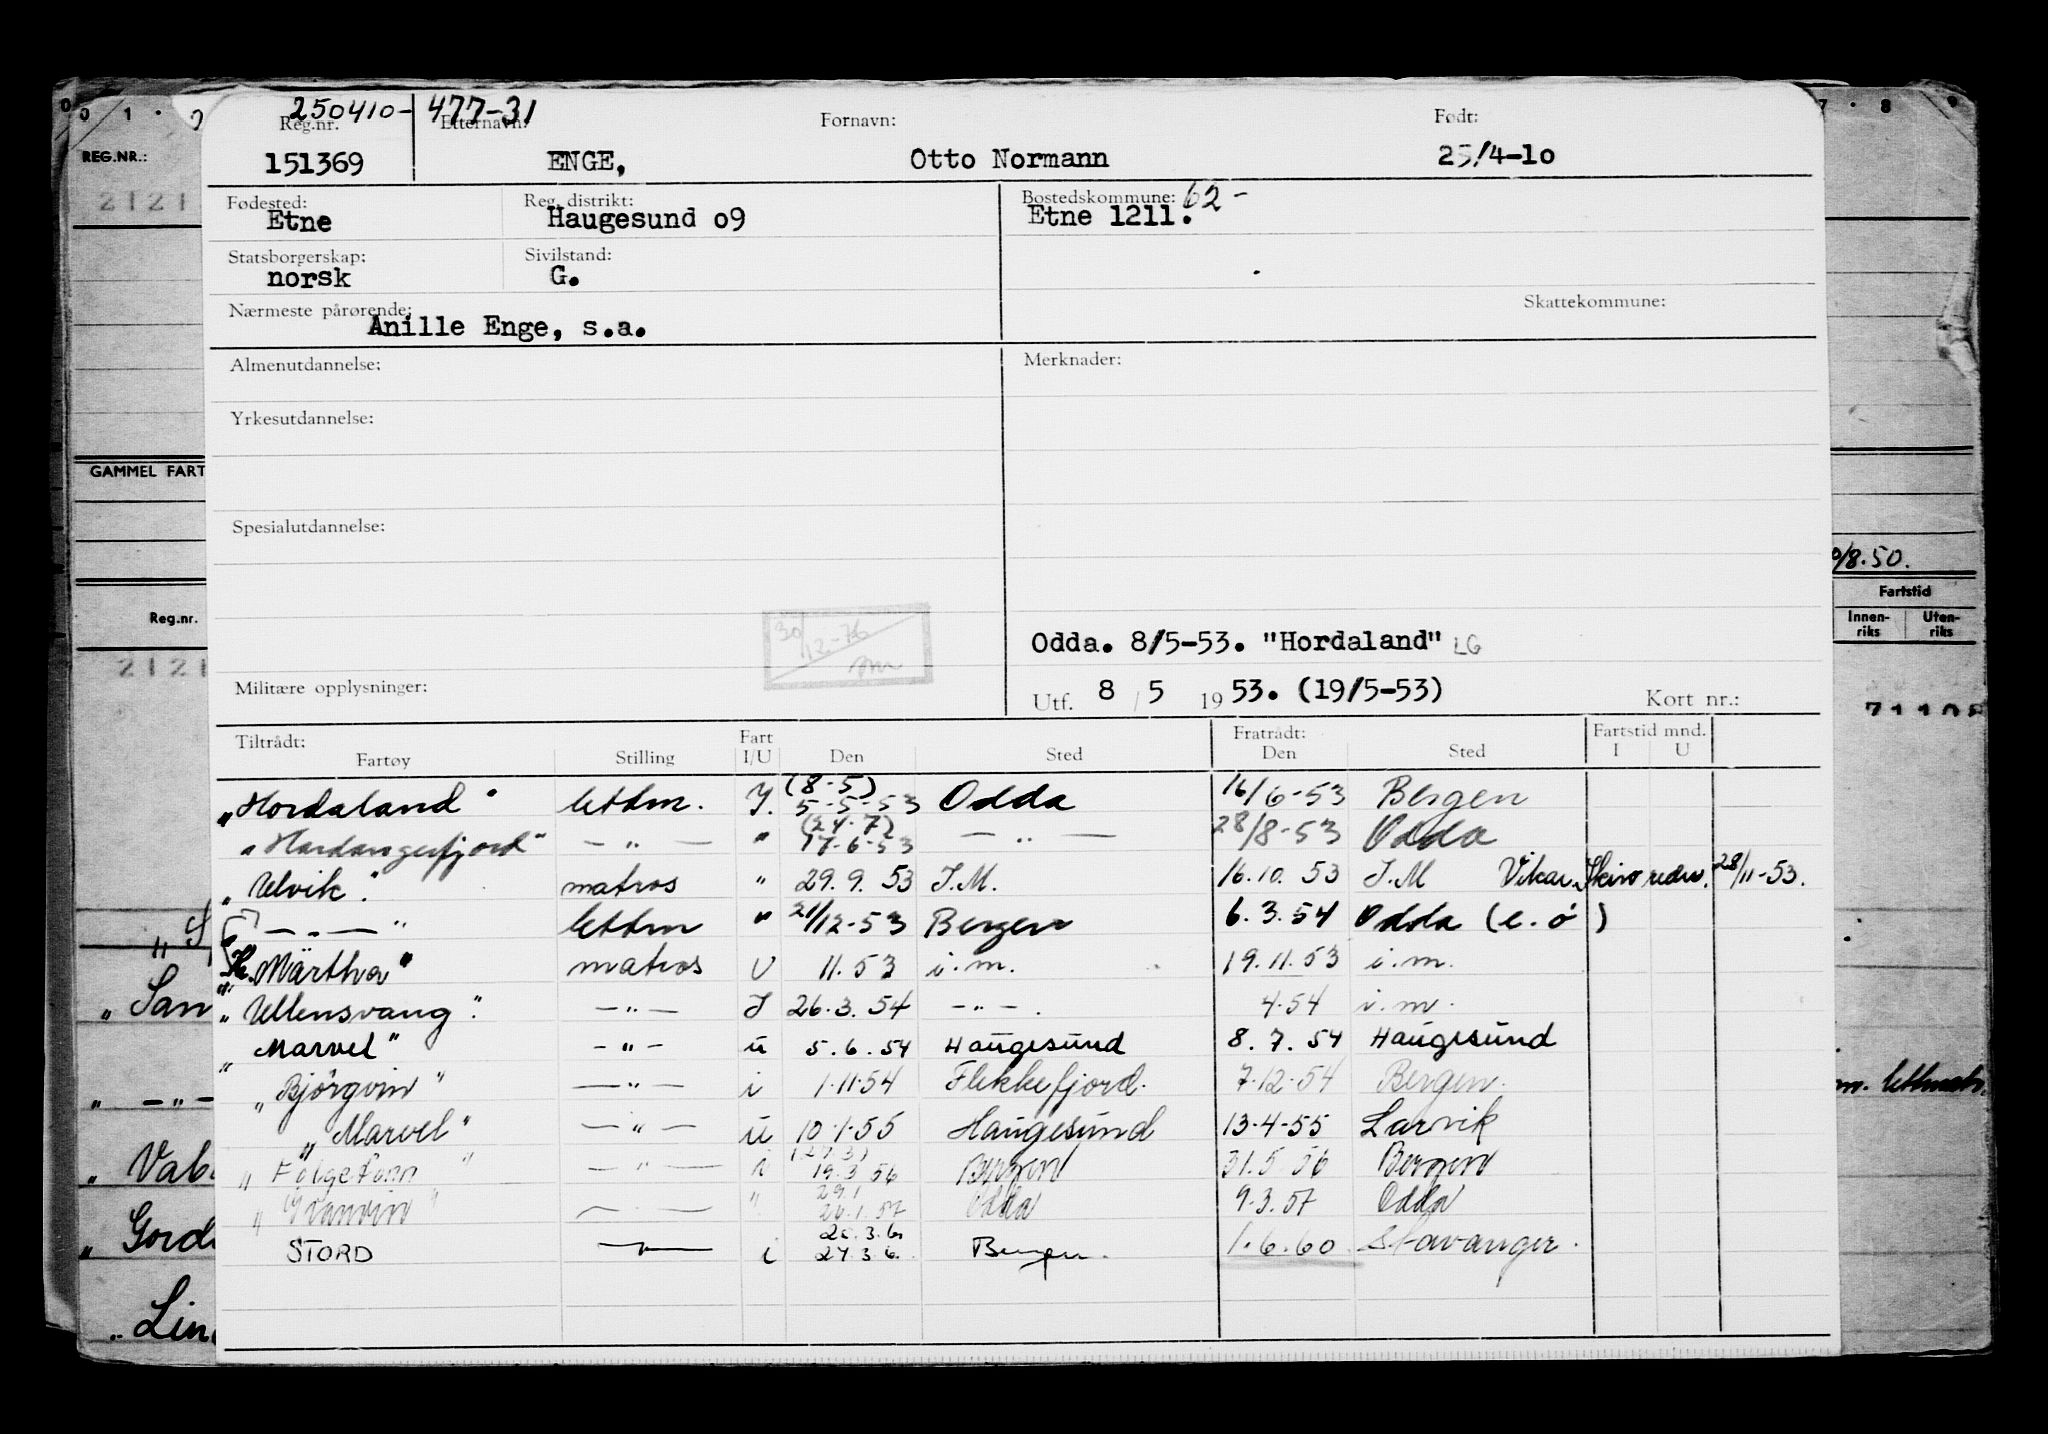 250410-477-31
Reg.nr. Etternavn: Fornavn: Født:
151369 ENGE, Otto Normann 25/4-10
Fødested: Reg. distrikt: Bostedskommune: 62-
Etne Haugesund 09 Etne 1211.
Statsborgerskap: Sivilstand:
norsk G.
Nærmeste pårørende: Skattekommune:
Anille Enge, s.a.
Almenutdannelse: Merknader:
Yrkesutdannelse:
Spesialutdannelse:
30/12-76
Odda. 8/5-53. "Hordaland" LG
Militære opplysninger: Utf. 8 / 5 1953. (19/5-53) Kort nr.:
Tiltrådt: Fart Fratrådt: Fartstid mnd.
Fartøy Stilling I/U Den Sted Den Sted I U
(8-5)
"Hordaland" lettm. I. 5-5-53 Odda 16/6-53 Bergen
(24.7)
"Hardangerfjord" — " — " 17-6-53 — " — 28/8-53 Odda
"Ulvik". matros " 29.9.53 I.M. 16.10.53 I.M Vikar. 28/11-53.
— " — " lettm " 21/12-53 Bergen 6.3.54 Odda (e.ö)
"Märtha" matros U 11.53 i.m. 19.11.53 i.m.
"Ullensvang". — " — I 26.3.54 — " — . 4.54 i.m.
"Marvel" — " — u 5.6.54 Haugesund 8.7.54 Haugesund
"Bjørgvin" — " — i 1.11.54 Flekkefjord. 7-12-54 Bergen.
"Marvel" — " — u 10.1.55 Haugesund 13-4-55 Larvik
(27.3)
"Folgefonn" — " — i 19.3.56 Bergen 31.5.56 Bergen
29.1
"Granvin" — " — " 26.1.57 Odda 9.3.57 Odda
STORD — " — i 27.3.6. Bergen. 1.6.60 Stavanger.
REG.NR.:
2121
GAMMEL FART
Reg.nr.
2121
"San
" — " —
"Gord
"Lin
0/8.50.
Fartstid
Innen-riks Uten-riks